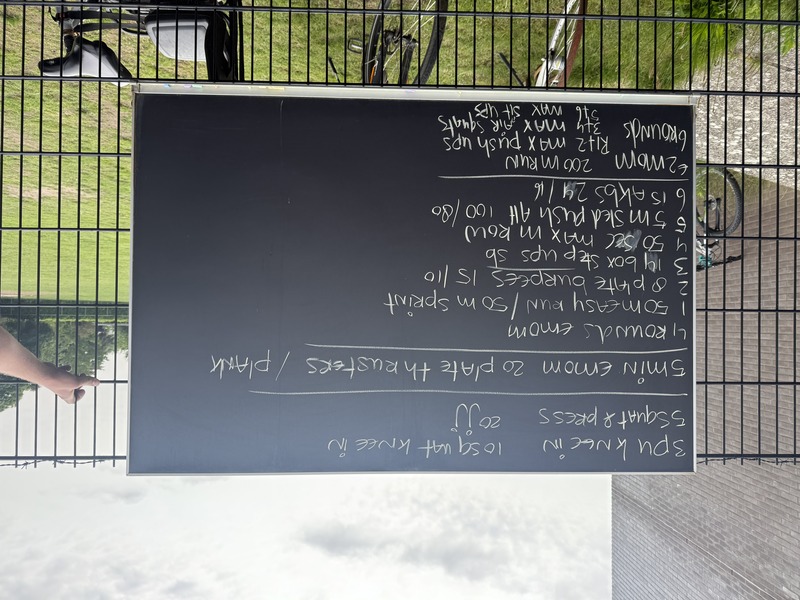 3PU KNEE IN 10 SQUAT KNEE IN
5 SQUAT & PRESS 20 JJ
5 MIN EMOM 20 PLATE THRUSTERS / PLANK
4 ROUNDS EMOM
1 50 M EASY RUN / 50 M SPRINT
2 8 PLATE BURPEES 15/10
3 14 BOX STEP UPS SB
4 50 SEC MAX M ROW
5 5 M SLED PUSH AH 100/80
6 15 AKBS 24/16
E2MOM 200 M RUN
6 ROUNDS R1+2 MAX PUSH UPS
3+4 MAX AIR SQUATS
5+6 MAX SIT-UPS